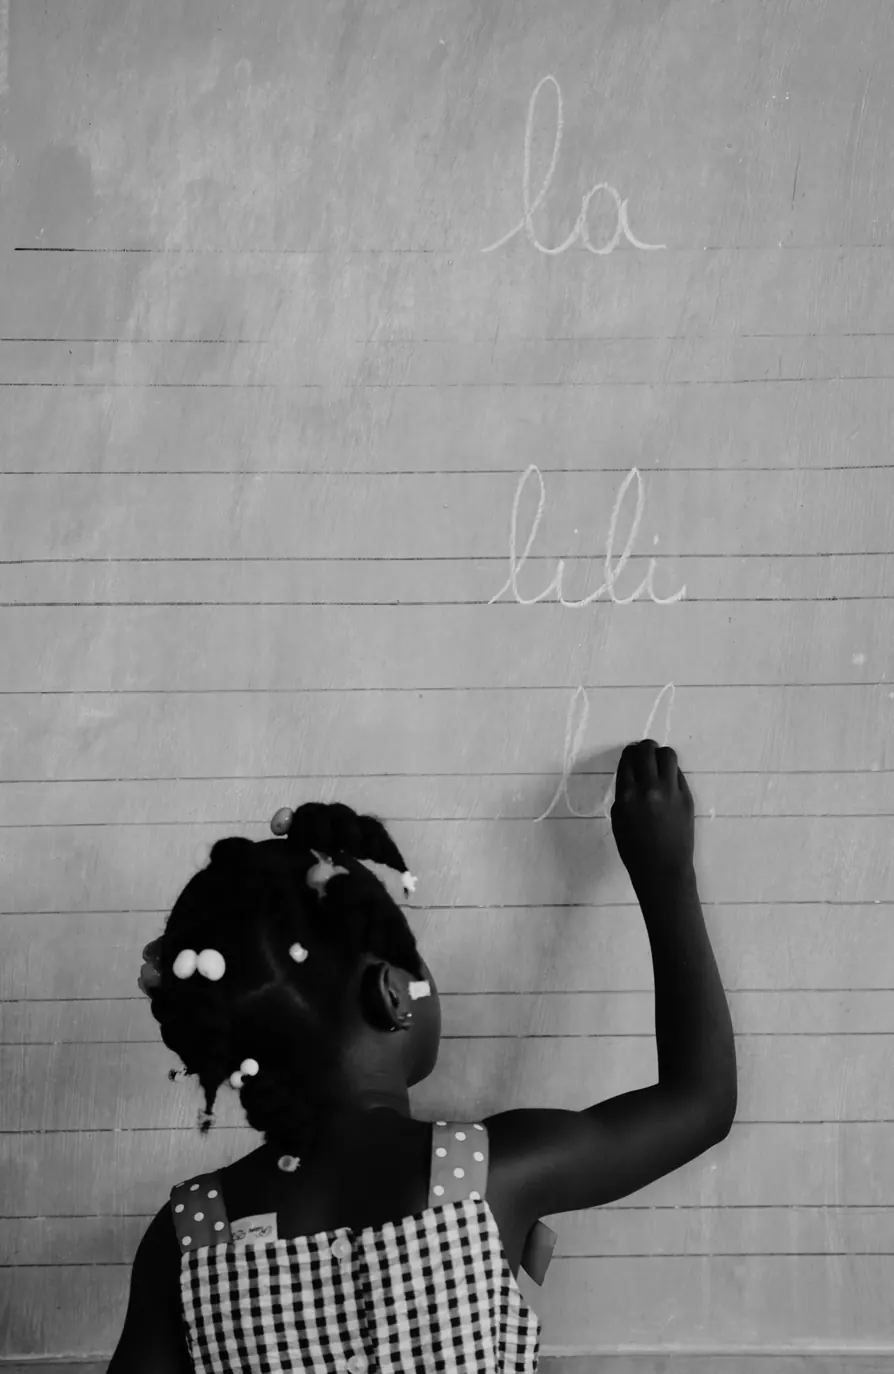 la
lili